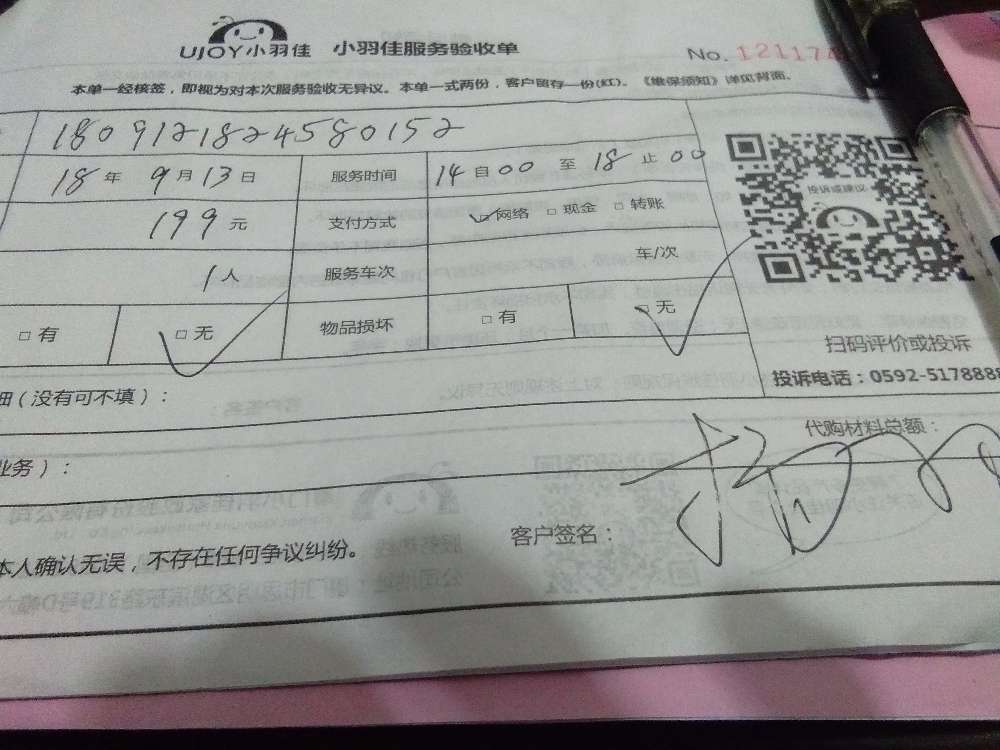 UJOY小羽佳 小羽佳服务验收单 No. 121174
本单一经核签，即视为对本次服务验收无异议。本单一式两份，客户留存一份(红)。《维保须知》详见背面。
1809121824580152
18年 9月13日 服务时间 14自00 至 18止00
199元 支付方式 □网络 □现金 □转账
1人 服务车次 车/次
□有 □无 物品损坏 □有 □无
投诉或建议
扫码评价或投诉
投诉电话：0592-5178888
细（没有可不填）：
代购材料总额：
业务）：
客户签名：
本人确认无误，不存在任何争议纠纷。